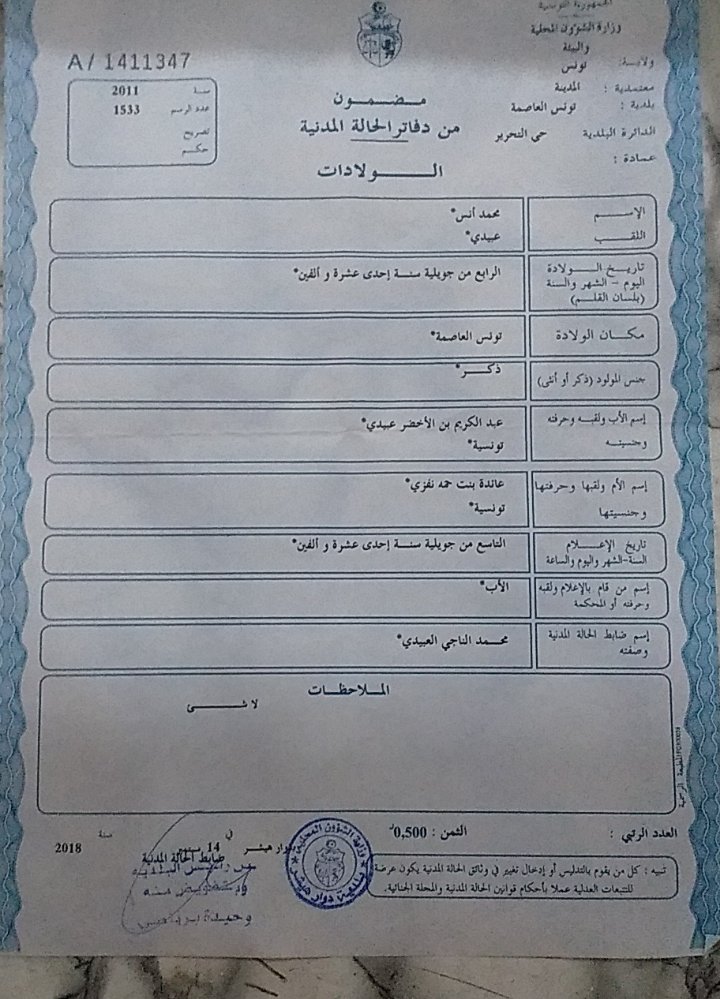 الجمهورية التونسية
وزارة الشؤون المحلية
والبيئة
ولاية: تونس
معتمدية : المدينة
بلدية : تونس العاصمة
الدائرة البلدية حي التحرير
عمادة :
A/ 1411347
سنة 2011
عدد الرسم 1533
تصريح
حكم
مضمون
من دفاتر الحالة المدنية
الولادات
الإسم محمد أنس*
اللقب عبيدي*
تاريخ الولادة
اليوم - الشهر والسنة
(بلسان القلم)
الرابع من جويلية سنة إحدى عشرة و ألفين*
مكان الولادة تونس العاصمة*
جنس المولود (ذكر أو أنثى) ذكر*
إسم الأب ولقبه وحرفته عبد الكريم بن الأخضر عبيدي*
وجنسيته تونسية*
إسم الأم ولقبها وحرفتها عائدة بنت حمه نفزي*
وجنسيتها تونسية*
تاريخ الإعلام
السنة-الشهر واليوم والساعة
التاسع من جويلية سنة إحدى عشرة و ألفين*
إسم من قام بالإعلام ولقبه
وحرفته أو المحكمة
الأب*
إسم ضابط الحالة المدنية
وصفته
محمد الناجي العبيدي*
الملاحظات
لا شئ
العدد الرتبي : الثمن : 0,500د
دوار هيشر في 14 سنة 2018
ضابط الحالة المدنية
عن رئيس البلدية
وبتفويض منه
وحيدة
وزارة الشؤون المحلية
بلدية دوار هيشر
تنبيه : كل من يقوم بالتدليس أو إدخال تغيير في وثائق الحالة المدنية يكون عرضة
للتتبعات العدلية عملا بأحكام قوانين الحالة المدنية والمجلة الجنائية.
المطبعة الرسمية